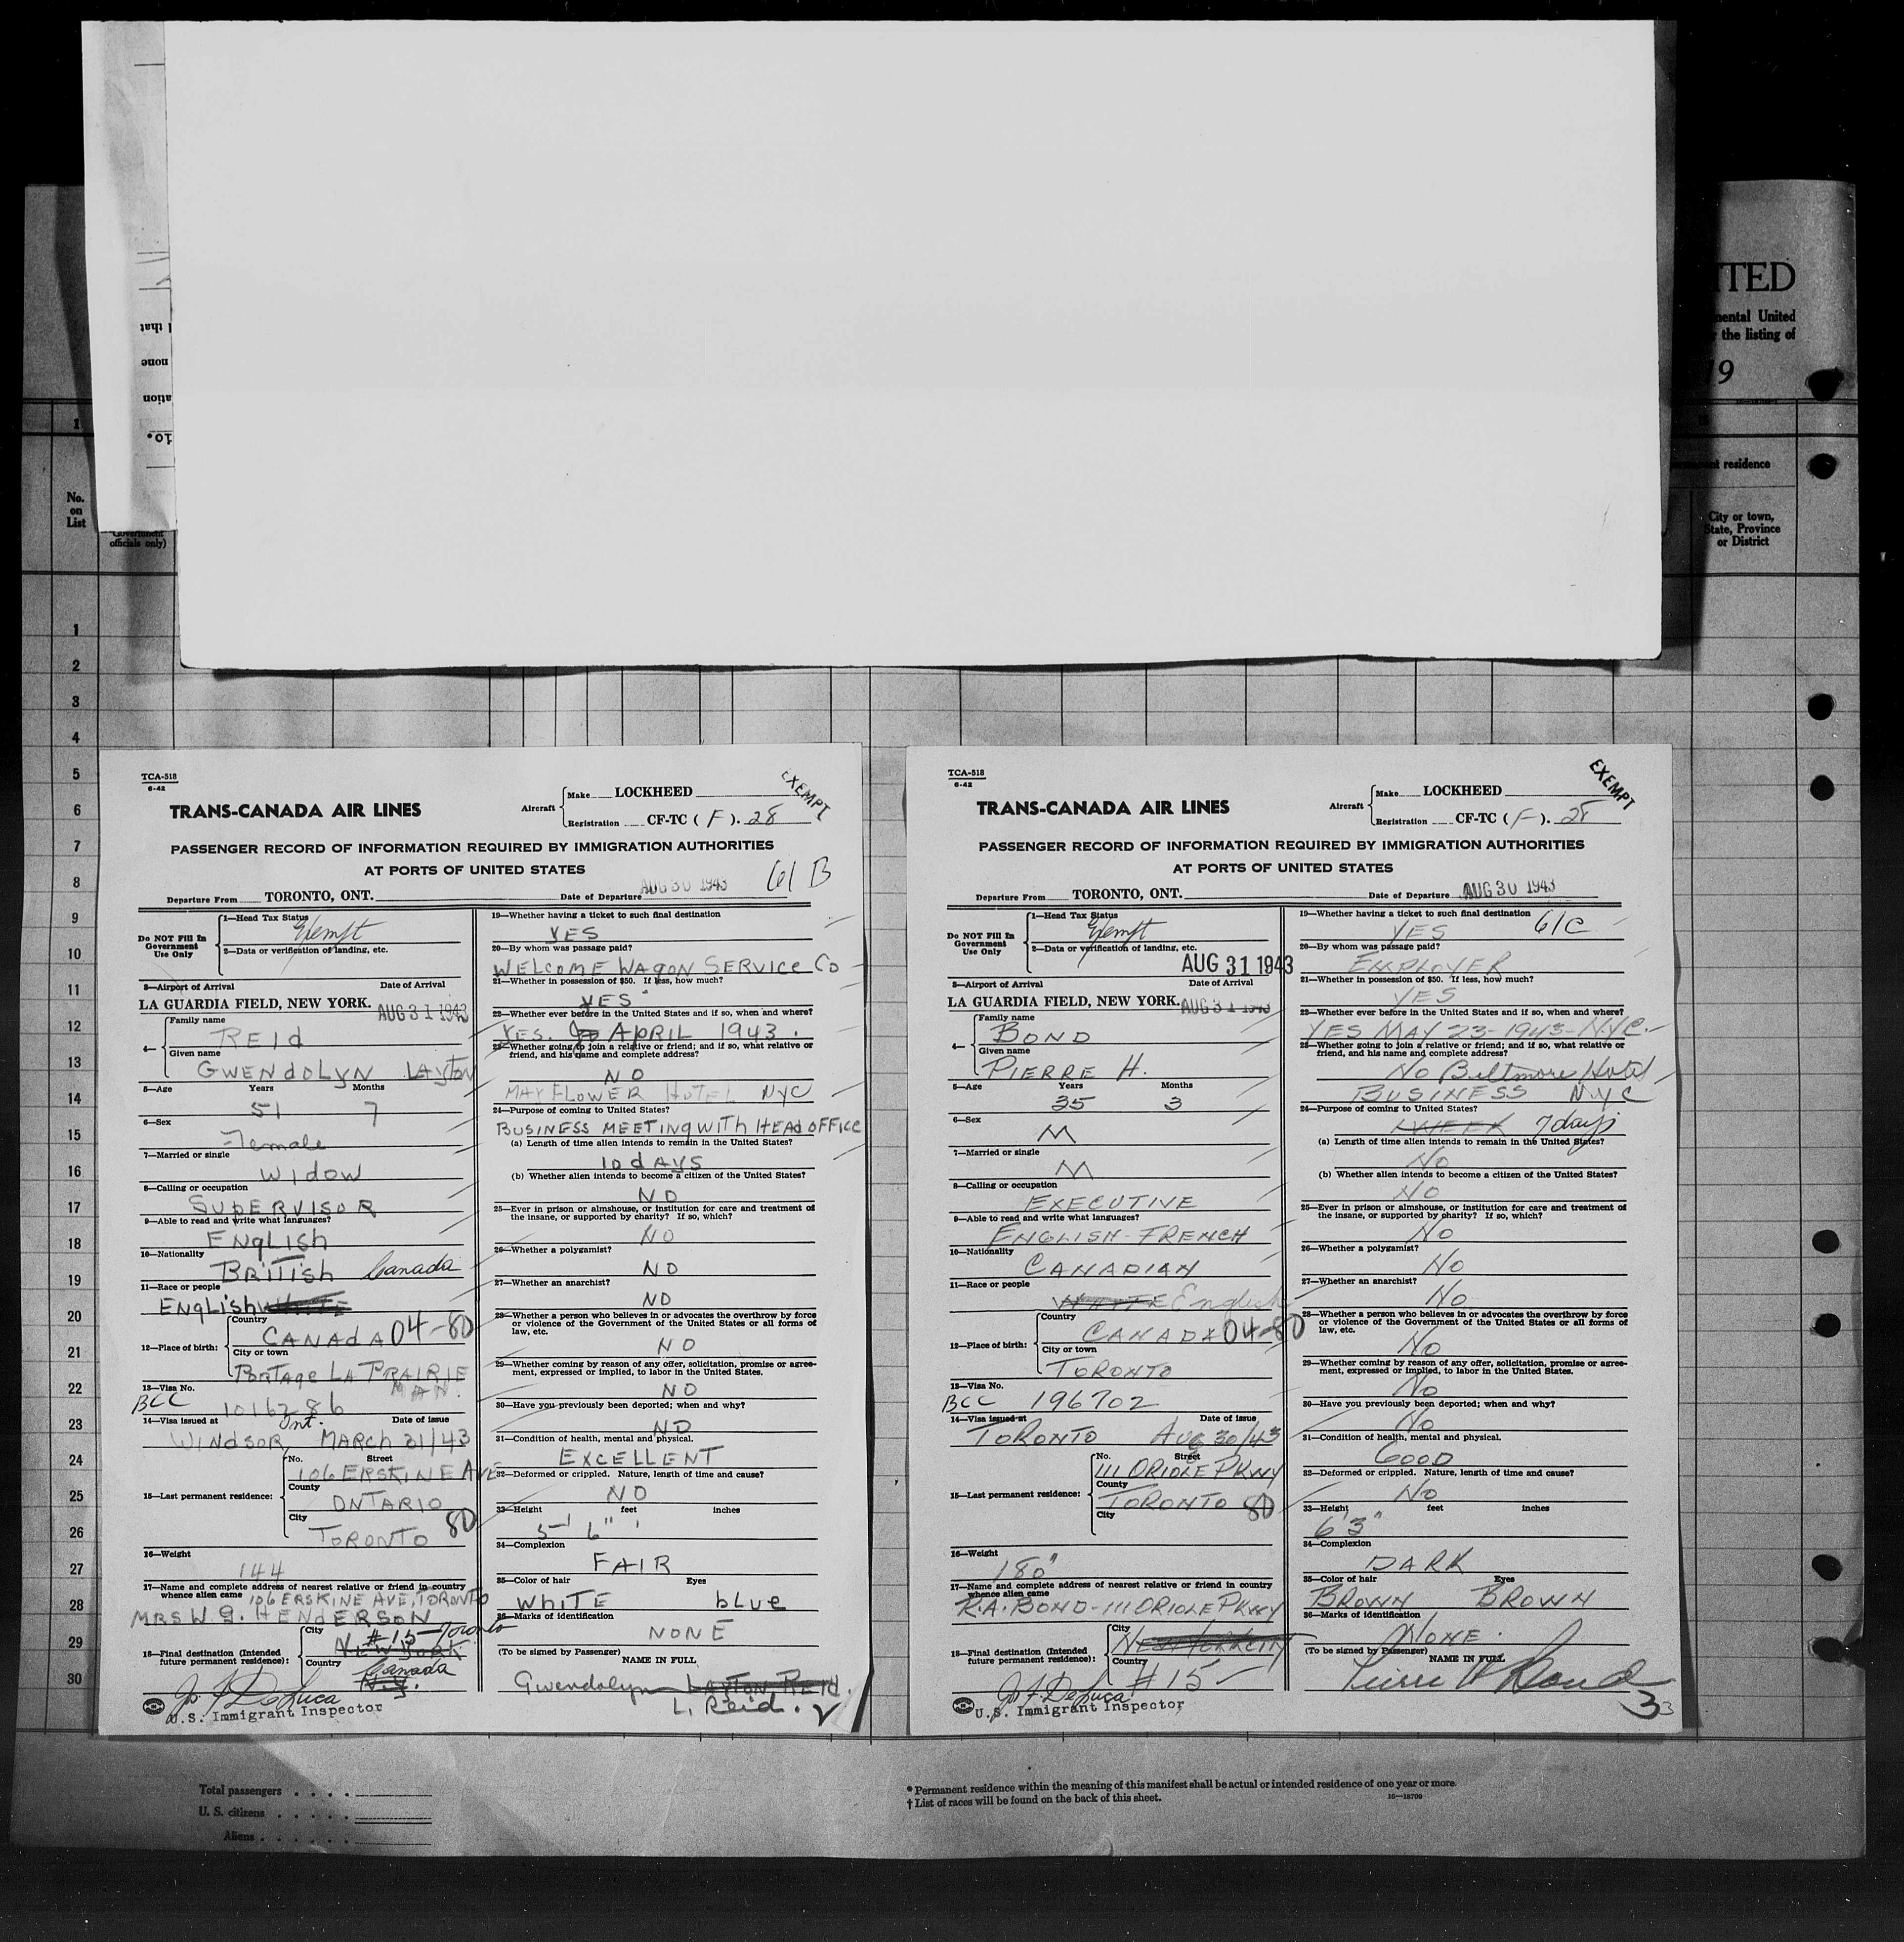 ITED
mental United
the listing of
19
that
none
ation
1
residence
No.
on
List
Government
officials only)
City or town,
State, Province
or District
1
2
3
4
5
6
7
8
9
10
11
12
13
14
15
16
17
18
19
20
21
22
23
24
25
26
27
28
29
30
TCA-518
6-42
EXEMPT
TRANS-CANADA AIR LINES
Aircraft
Make LOCKHEED
Registration CF-TC (F). 28
PASSENGER RECORD OF INFORMATION REQUIRED BY IMMIGRATION AUTHORITIES
AT PORTS OF UNITED STATES
61 B
Departure From TORONTO, ONT. Date of Departure AUG 30 1943
Do NOT Fill In
Government
Use Only
1—Head Tax Status
Exempt
2—Data or verification of landing, etc.
3—Airport of Arrival Date of Arrival
LA GUARDIA FIELD, NEW YORK. AUG 31 1943
4—
Family name
REId
Given name
GWENdOLYN LAYTON
5—Age Years Months
51 7
6—Sex
Female
7—Married or single
WIdOW
8—Calling or occupation
SUPERVISOR
9—Able to read and write what languages?
ENgLISh
10—Nationality
BRITISh Canada
11—Race or people
ENgLish WHITE
12—Place of birth:
Country
CANAdA 04-80
City or town
PORTAge LA PRAIRIE
MAN.
13—Visa No.
BCC 1016286
14—Visa issued at Ont. Date of issue
WINdSOR MARCh 31/43
15—Last permanent residence:
No. Street
106 ERSKINE AVE
County
ONTARIO
City 80
TORONTO
16—Weight
144
17—Name and complete address of nearest relative or friend in country
whence alien came 106 ERSKINE AVE, TORONTO
MRS W. G. HENdERSON
18—Final destination (Intended
future permanent residence):
City #15—Toronto
NEW YORK
Country Canada
N.Y.
Jos F DeLuca
U.S. Immigrant Inspector
19—Whether having a ticket to such final destination
YES
20—By whom was passage paid?
WELCOME WAgON SERVICE Co
21—Whether in possession of $50. If less, how much?
YES
22—Whether ever before in the United States and if so, when and where?
YES. APRIL 1943.
23—Whether going to join a relative or friend; and if so, what relative or
friend, and his name and complete address?
NO
MAYFLOWER HOTEL NYC
24—Purpose of coming to United States?
BUSINESS MEETINg WITh HEAd OFFICE
(a) Length of time alien intends to remain in the United States?
10 dAYS
(b) Whether alien intends to become a citizen of the United States?
NO
25—Ever in prison or almshouse, or institution for care and treatment of
the insane, or supported by charity? If so, which?
NO
26—Whether a polygamist?
NO
27—Whether an anarchist?
NO
28—Whether a person who believes in or advocates the overthrow by force
or violence of the Government of the United States or all forms of
law, etc.
NO
29—Whether coming by reason of any offer, solicitation, promise or agree-
ment, expressed or implied, to labor in the United States.
NO
30—Have you previously been deported; when and why?
NO
31—Condition of health, mental and physical.
EXCELLENT
32—Deformed or crippled. Nature, length of time and cause?
NO
33—Height feet inches
5' 6"
34—Complexion
FAIR
35—Color of hair Eyes
WhITE bLUe
36—Marks of identification
NONE
(To be signed by Passenger)
NAME IN FULL
Gwendolyn LAYTON REId.
L. Reid. 2
TCA-518
6-42
EXEMPT
TRANS-CANADA AIR LINES
Aircraft
Make LOCKHEED
Registration CF-TC (F). 28
PASSENGER RECORD OF INFORMATION REQUIRED BY IMMIGRATION AUTHORITIES
AT PORTS OF UNITED STATES
Departure From TORONTO, ONT. Date of Departure AUG 30 1943
Do NOT Fill In
Government
Use Only
1—Head Tax Status
Exempt
2—Data or verification of landing, etc.
AUG 31 1943
3—Airport of Arrival Date of Arrival
LA GUARDIA FIELD, NEW YORK. AUG 31 1943
4—
Family name
BOND
Given name
PIERRE H.
5—Age Years Months
35 3
6—Sex
M
7—Married or single
M
8—Calling or occupation
EXECUTIVE
9—Able to read and write what languages?
ENGLISH-FRENCH
10—Nationality
CANADIAN
11—Race or people
WHITE English
12—Place of birth:
Country
CANADA 04-80
City or town
TORONTO
13—Visa No.
BCC 196702
14—Visa issued at Date of issue
TORONTO AUG 30/43
15—Last permanent residence:
No. Street
111 ORIOLE PKWY
County
TORONTO 80
City
16—Weight
180
17—Name and complete address of nearest relative or friend in country
whence alien came
R.A. BOND-111 ORIOLE PKWY
18—Final destination (Intended
future permanent residence):
City
NEW YORK CITY
Country
#15-
Jos F. DeLuca
U.S. Immigrant Inspector
19—Whether having a ticket to such final destination
YES 61C
20—By whom was passage paid?
EMPLOYER
21—Whether in possession of $50. If less, how much?
YES
22—Whether ever before in the United States and if so, when and where?
YES MAY 23-1943-N.Y.C.
23—Whether going to join a relative or friend; and if so, what relative or
friend, and his name and complete address?
NO Biltmore Hotel
BUSINESS N.Y.C
24—Purpose of coming to United States?
1 WEEK 7 days
(a) Length of time alien intends to remain in the United States?
NO
(b) Whether alien intends to become a citizen of the United States?
NO
25—Ever in prison or almshouse, or institution for care and treatment of
the insane, or supported by charity? If so, which?
NO
26—Whether a polygamist?
NO
27—Whether an anarchist?
NO
28—Whether a person who believes in or advocates the overthrow by force
or violence of the Government of the United States or all forms of
law, etc.
NO
29—Whether coming by reason of any offer, solicitation, promise or agree-
ment, expressed or implied, to labor in the United States.
NO
30—Have you previously been deported; when and why?
NO
31—Condition of health, mental and physical.
GOOD
32—Deformed or crippled. Nature, length of time and cause?
NO
33—Height feet inches
6'3"
34—Complexion
DARK
35—Color of hair Eyes
BROWN BROWN
36—Marks of identification
NONE.
(To be signed by Passenger)
NAME IN FULL
Pierre H Bond
3 3
Total passengers . . . .
U. S. citizens . . . . .
Aliens . . . . . .
* Permanent residence within the meaning of this manifest shall be actual or intended residence of one year or more.
† List of races will be found on the back of this sheet.
16—18700